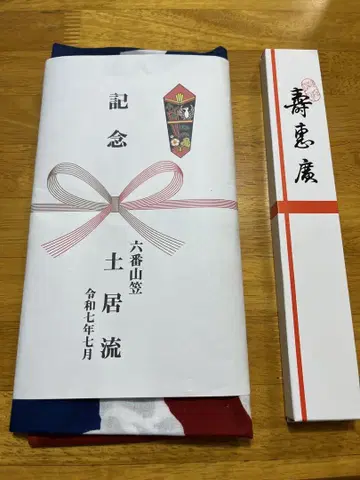 記念
六番山笠
土居流
令和七年七月
壽恵廣